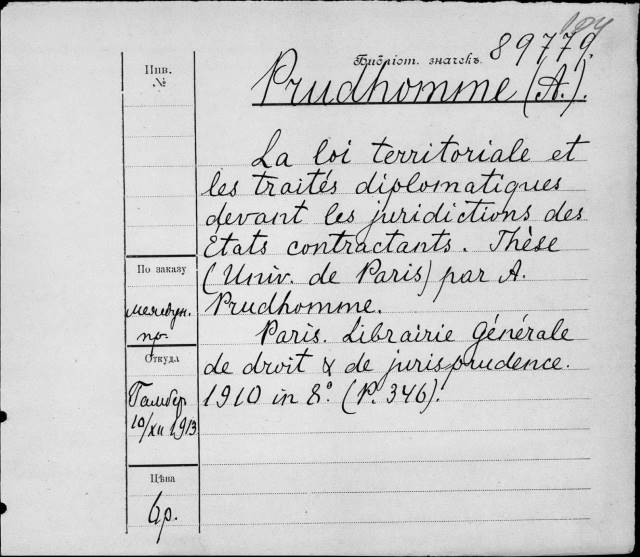 Библіот. значекъ. 89779.
Инв.
№
Prudhomme (A.).
La loi territoriale et
les traités diplomatiques
devant les juridictions des
États contractants. Thèse
(Univ. de Paris) par A.
Prudhomme.
Paris. Librairie Générale
de droit & de jurisprudence.
1910 in 8º. (P. 346).
По заказу
междун.
пр.
Откуда
Гамбер
10/XII 1913
Цѣна
6р.